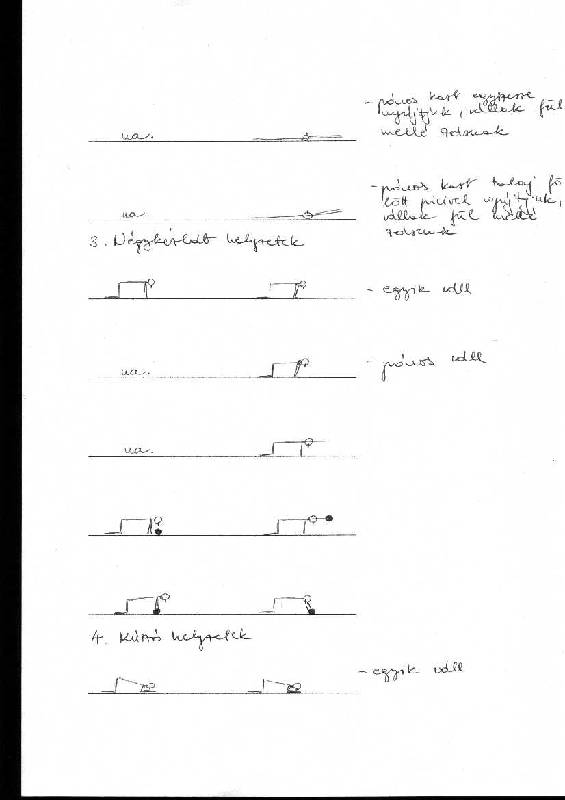 - páros kart egyszerre
nyújtjuk, vállak fül
mellé
ua.
- páros kart talaj fö
lött picivel nyújtjuk,
vállak fül mellé
ua
3. Négykézláb helyzetek
- egyik váll
- páros váll
ua.
ua.
4. helyzetek
- egyik váll